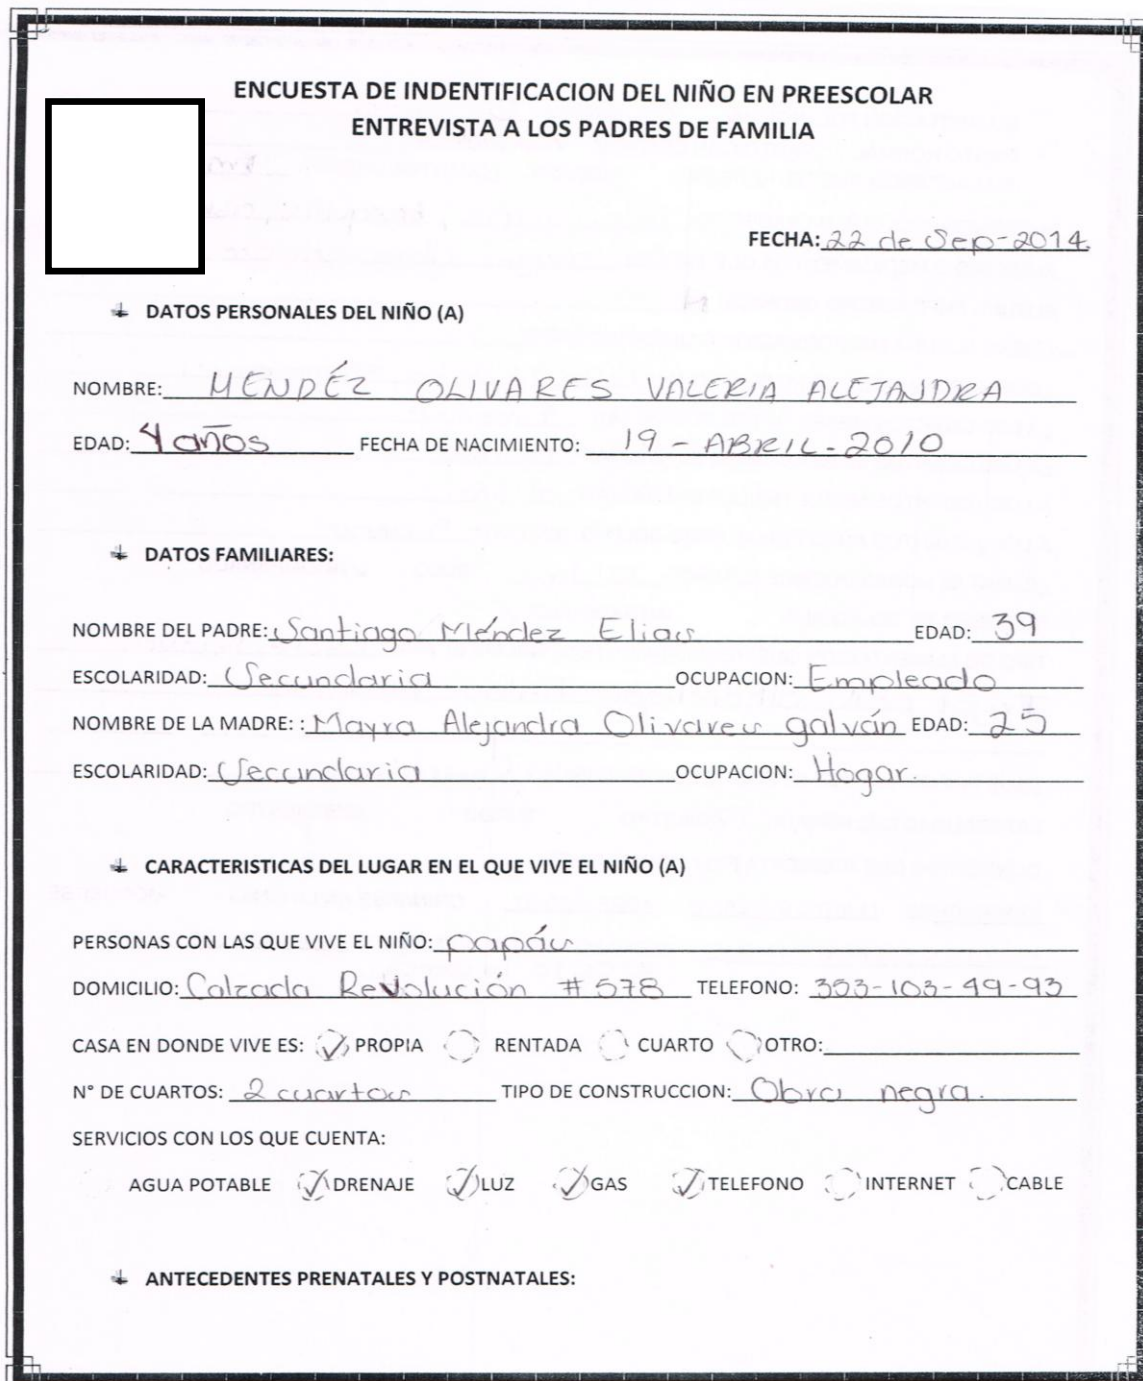 ENCUESTA DE INDENTIFICACION DEL NIÑO EN PREESCOLAR
ENTREVISTA A LOS PADRES DE FAMILIA
FECHA: 22 de Sep-2014.
DATOS PERSONALES DEL NIÑO (A)
NOMBRE: MENDÉZ OLIVARES VALERIA ALEJANDRA
EDAD: 4 años FECHA DE NACIMIENTO: 19-ABRIL-2010
DATOS FAMILIARES:
NOMBRE DEL PADRE: Santiago Méndez Elias EDAD: 39
ESCOLARIDAD: Secundaria OCUPACION: Empleado
NOMBRE DE LA MADRE: : Mayra Alejandra Olivares galván EDAD: 25
ESCOLARIDAD: Secundaria OCUPACION: Hogar.
CARACTERISTICAS DEL LUGAR EN EL QUE VIVE EL NIÑO (A)
PERSONAS CON LAS QUE VIVE EL NIÑO: papás
DOMICILIO: Calzada Revolución #578 TELEFONO: 353-103-49-93
CASA EN DONDE VIVE ES: PROPIA RENTADA CUARTO OTRO:
N° DE CUARTOS: 2 cuartos TIPO DE CONSTRUCCION: Obra negra.
SERVICIOS CON LOS QUE CUENTA:
AGUA POTABLE DRENAJE LUZ GAS TELEFONO INTERNET CABLE
ANTECEDENTES PRENATALES Y POSTNATALES: